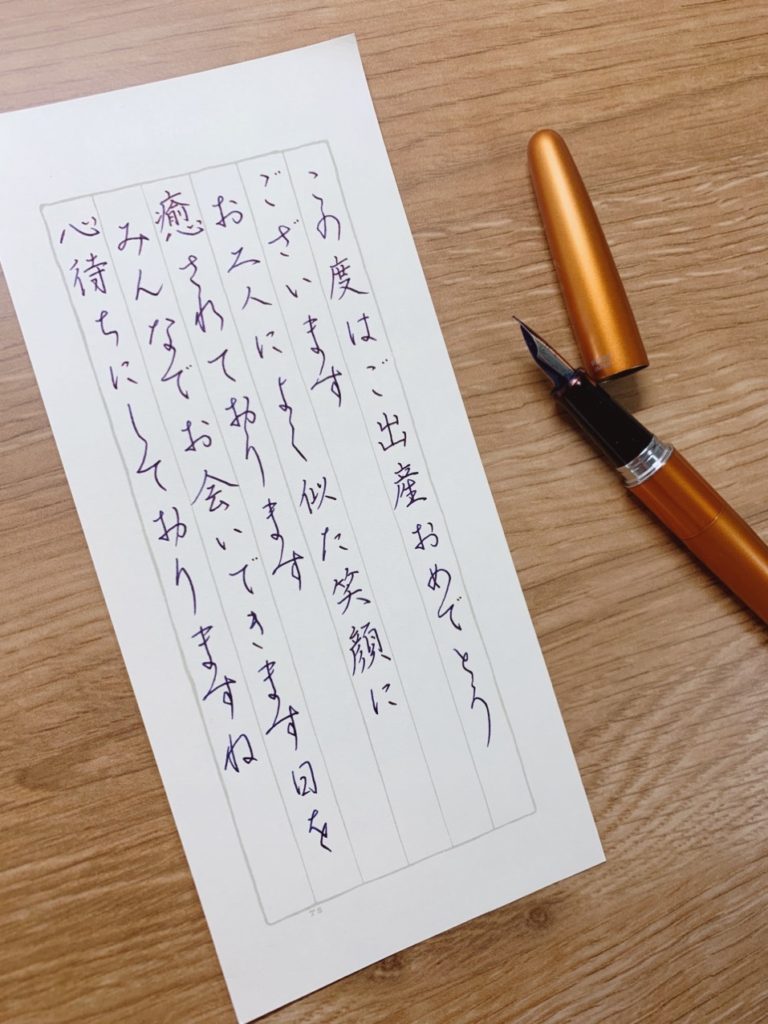 この度はご出産おめでとう
ございます
お二人によく似た笑顔に
癒されております
みんなでお会いできます日を
心待ちにしておりますね